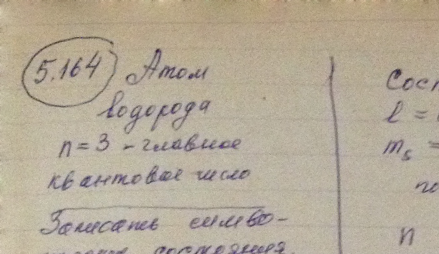 5.164 Атом
водорода
n = 3 - главное
квантовое число
Записать симво-
состояния
Сост
l =
m_s =
n